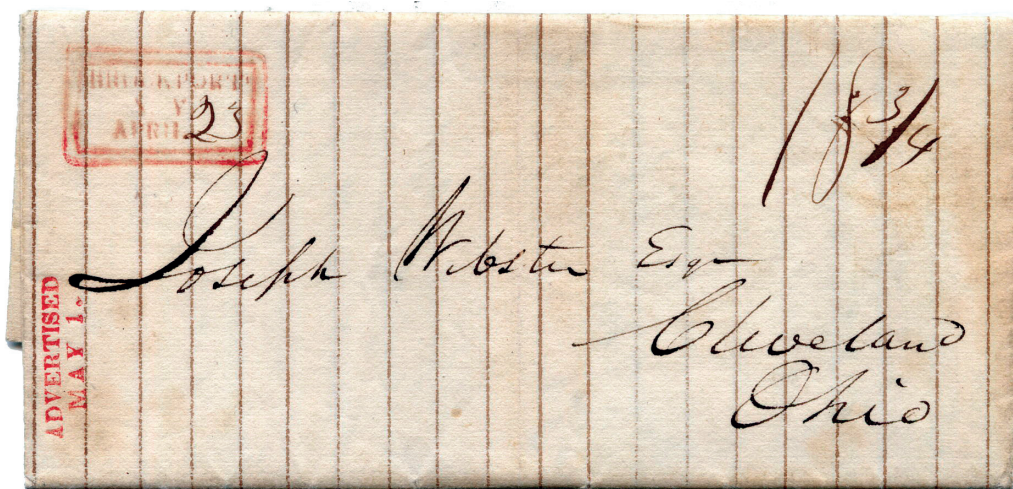 BROCKPORT
N Y
APRIL 23
18 3/4
Joseph Webster Esqr
Cleveland
Ohio
ADVERTISED
MAY 1.